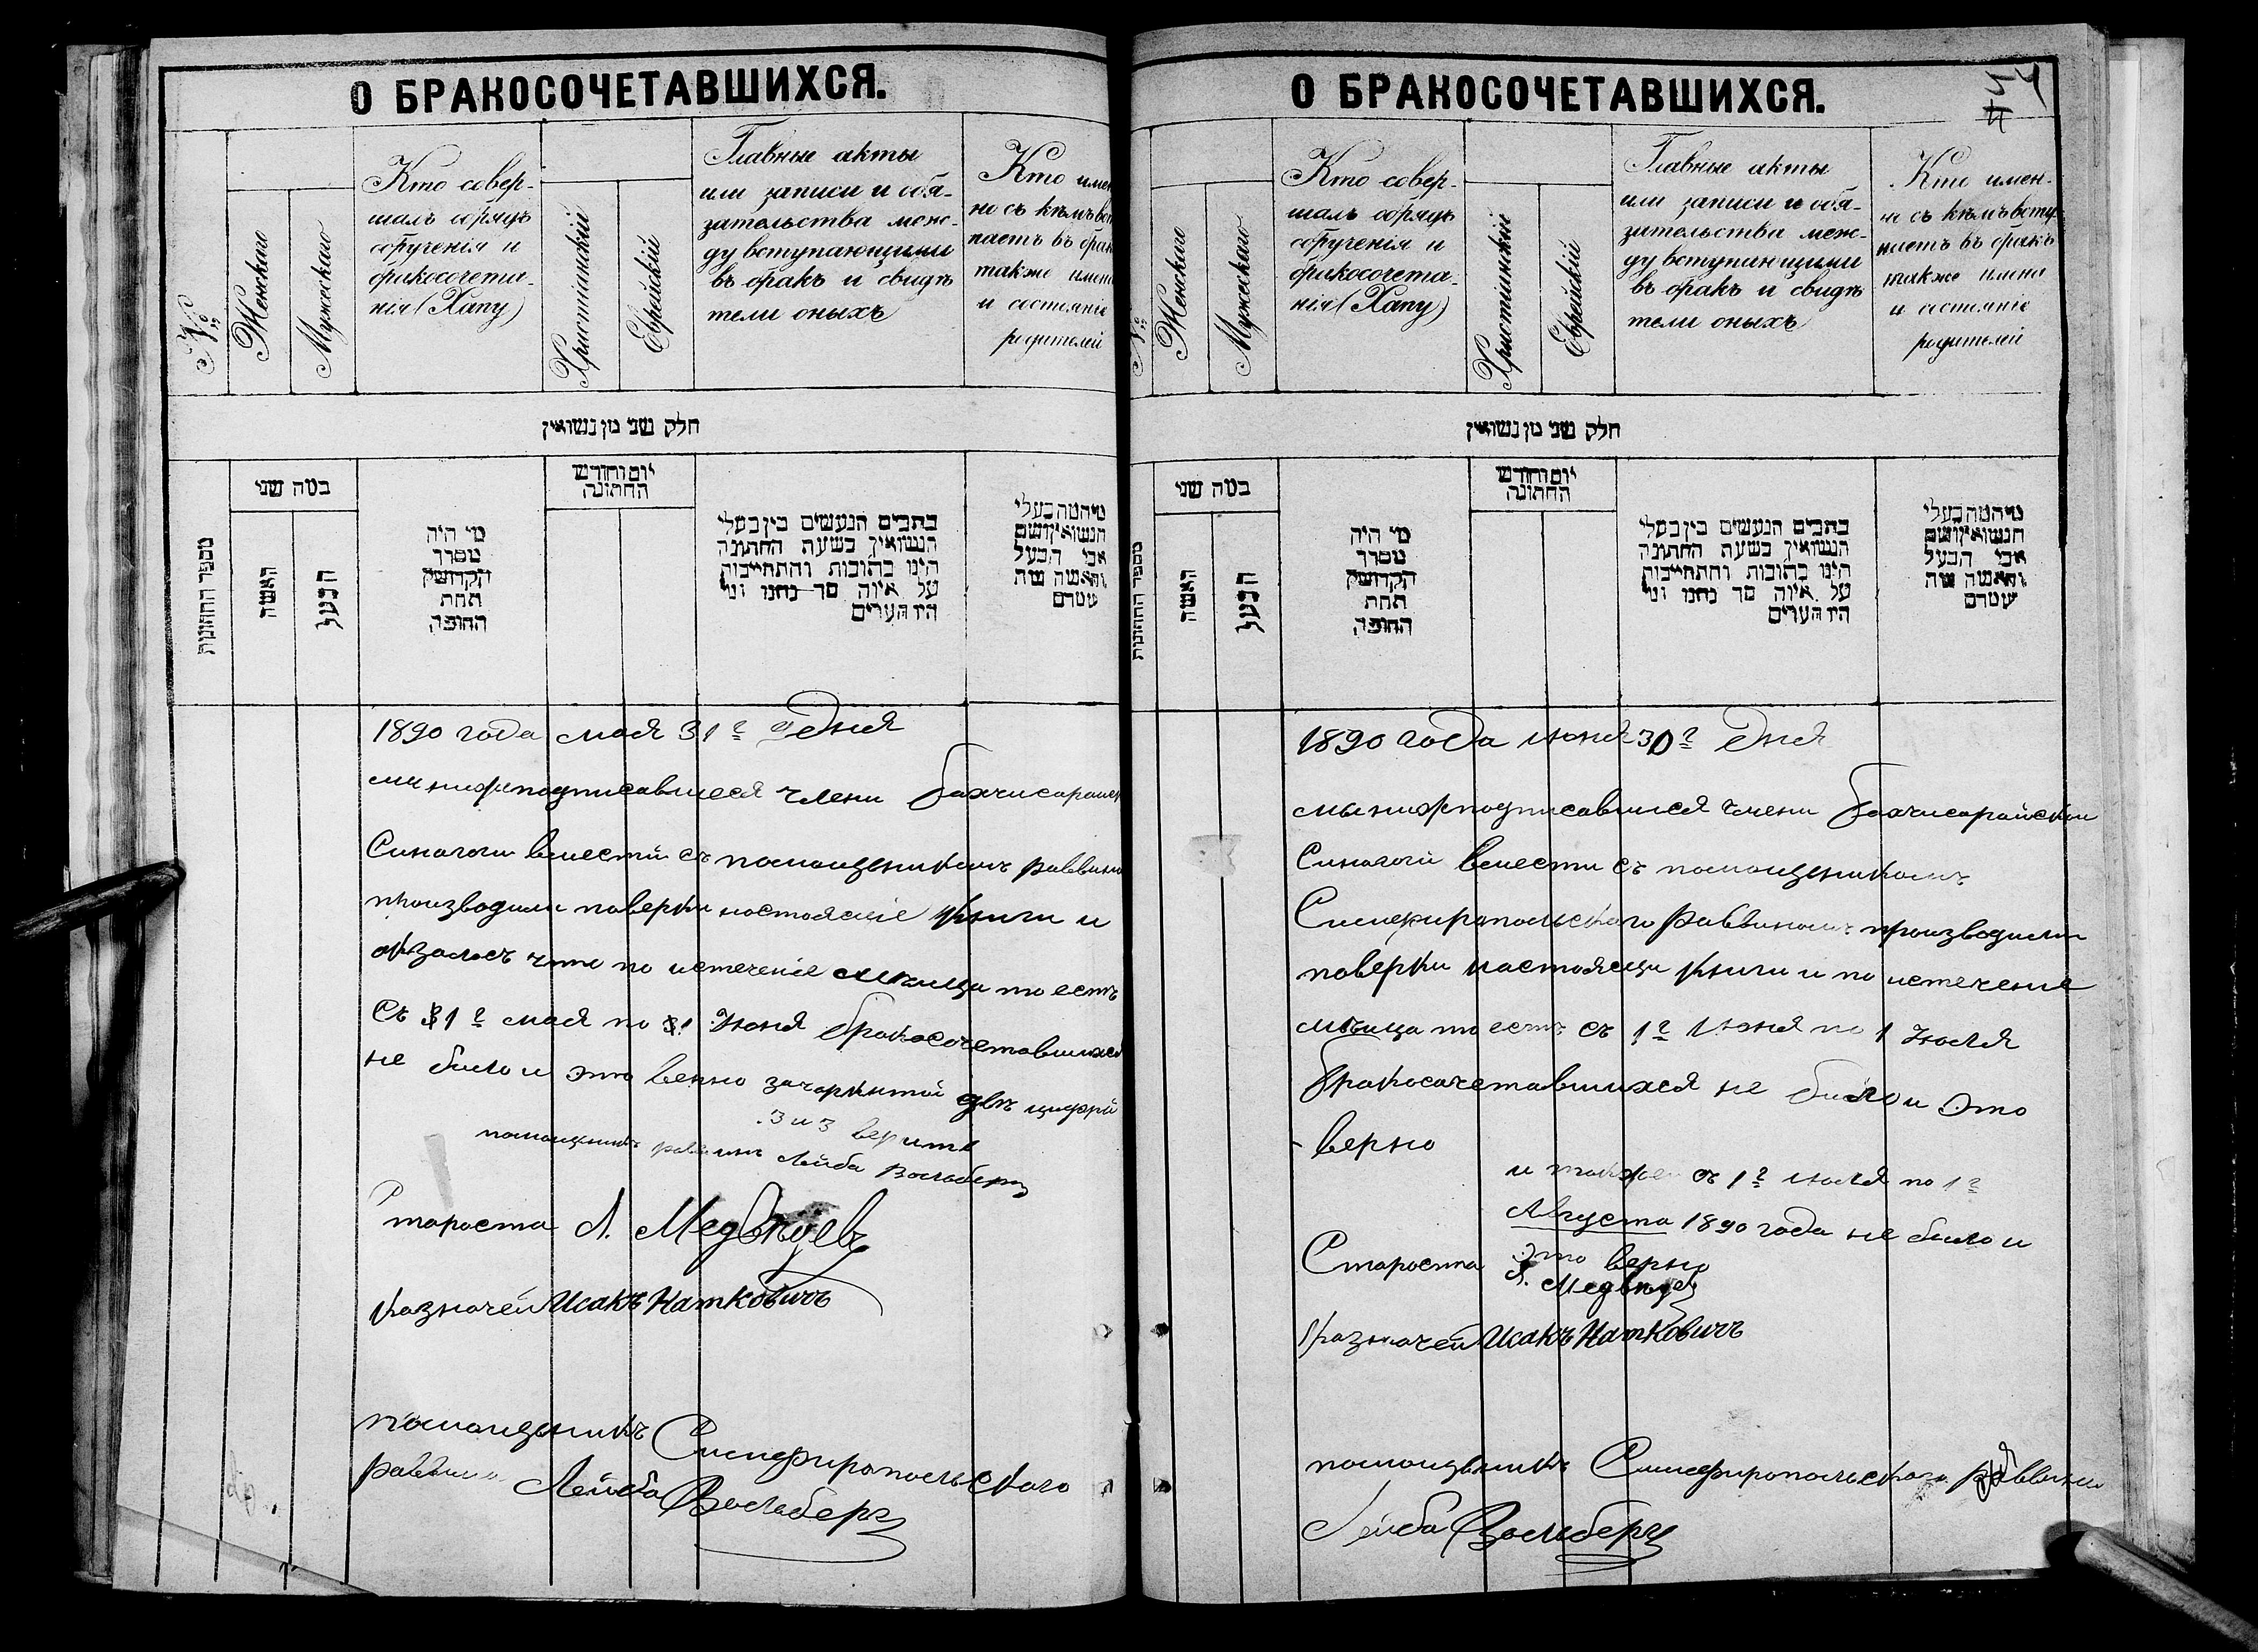 О БРАКОСОЧЕТАВШИХСЯ.
№
Женскаго
Мужескаго
Кто совер-
шалъ обрядъ
обрученія и
бракосочета-
нія (Хапу)
Христіянскій
Еврейскій
Главные акты
или записи и обя-
зательства меж-
ду вступающими
въ бракъ и свидѣ
тели оныхъ
Кто имен
но съ кѣмъ вст
паетъ въ брак
также имена
и состояніе
родителей
חלק שני מן נשואין
מספר החתונות
כמה שני
האשה
הבעל
מי היה
מסדר
הקדושין
תחת
החופה
יום וחודש
החתונה
כתבים הנעשים בין בעלי
הנשואין בשעת החתונה
היינו כתובות והתחייבות
על איזה סך נתנו ומי
היו העדים
מי המה בעלי
הנשואין ושם
אבי הבעל
והאשה מה
שמם
1890 года мая 31го дня
ми нижеподписавшиеся члени бахчисарайск
Синагоги вместй съ помощникомъ раввина
производили поверки настояще книги и
оказалось что по истечение мѣсяца то есть
Съ 31го мая по 31 Июня бракосочетавшихся
не било и это верно зачоркнтой двѣ цифри
3 и 3 верите
помощникъ раввинъ Лейба Вольберг
Староста Л. Медвѣдевъ
Казначей Исакъ Наткович
помощникъ Симферопольскаго
раввина Лейба Вольберг
О БРАКОСОЧЕТАВШИХСЯ.
№
Женскаго
Мужескаго
Кто совер-
шалъ обрядъ
обрученія и
бракосочета-
нія (Хапу)
Христіянскій
Еврейскій
Главные акты
или записи и обя-
зательства меж-
ду вступающими
въ бракъ и свидѣ
тели оныхъ
Кто имен-
но съ кѣмъ всту-
паетъ въ бракъ
также имена
и состояніе
родителей
חלק שני מן נשואין
מספר החתונות
כמה שני
האשה
הבעל
מי היה
מסדר
הקדושין
תחת
החופה
יום וחודש
החתונה
כתבים הנעשים בין בעלי
הנשואין בשעת החתונה
היינו כתובות והתחייבות
על איזה סך נתנו ומי
היו העדים
מי המה בעלי
הנשואין ושם
אבי הבעל
והאשה מה
שמם
1890 года июня 30го дня
мы нижподписавшися члени бахчисарайскои
Синагогй вмести съ помощникомъ
Симферопольскаго раввиномъ производили
поверки настоящи книги и по истечение
мѣсяца то есть съ 1го Июня по 1 Июля
бракосочетавшихся не било и это
верно
и также съ 1го июля по 1го
Августа 1890 года не било и
это верно
Староста Л. Медвѣдев
Казначей Исакъ Наткович
помощникъ Симферопольскаго раввина
Лейба Вольберг